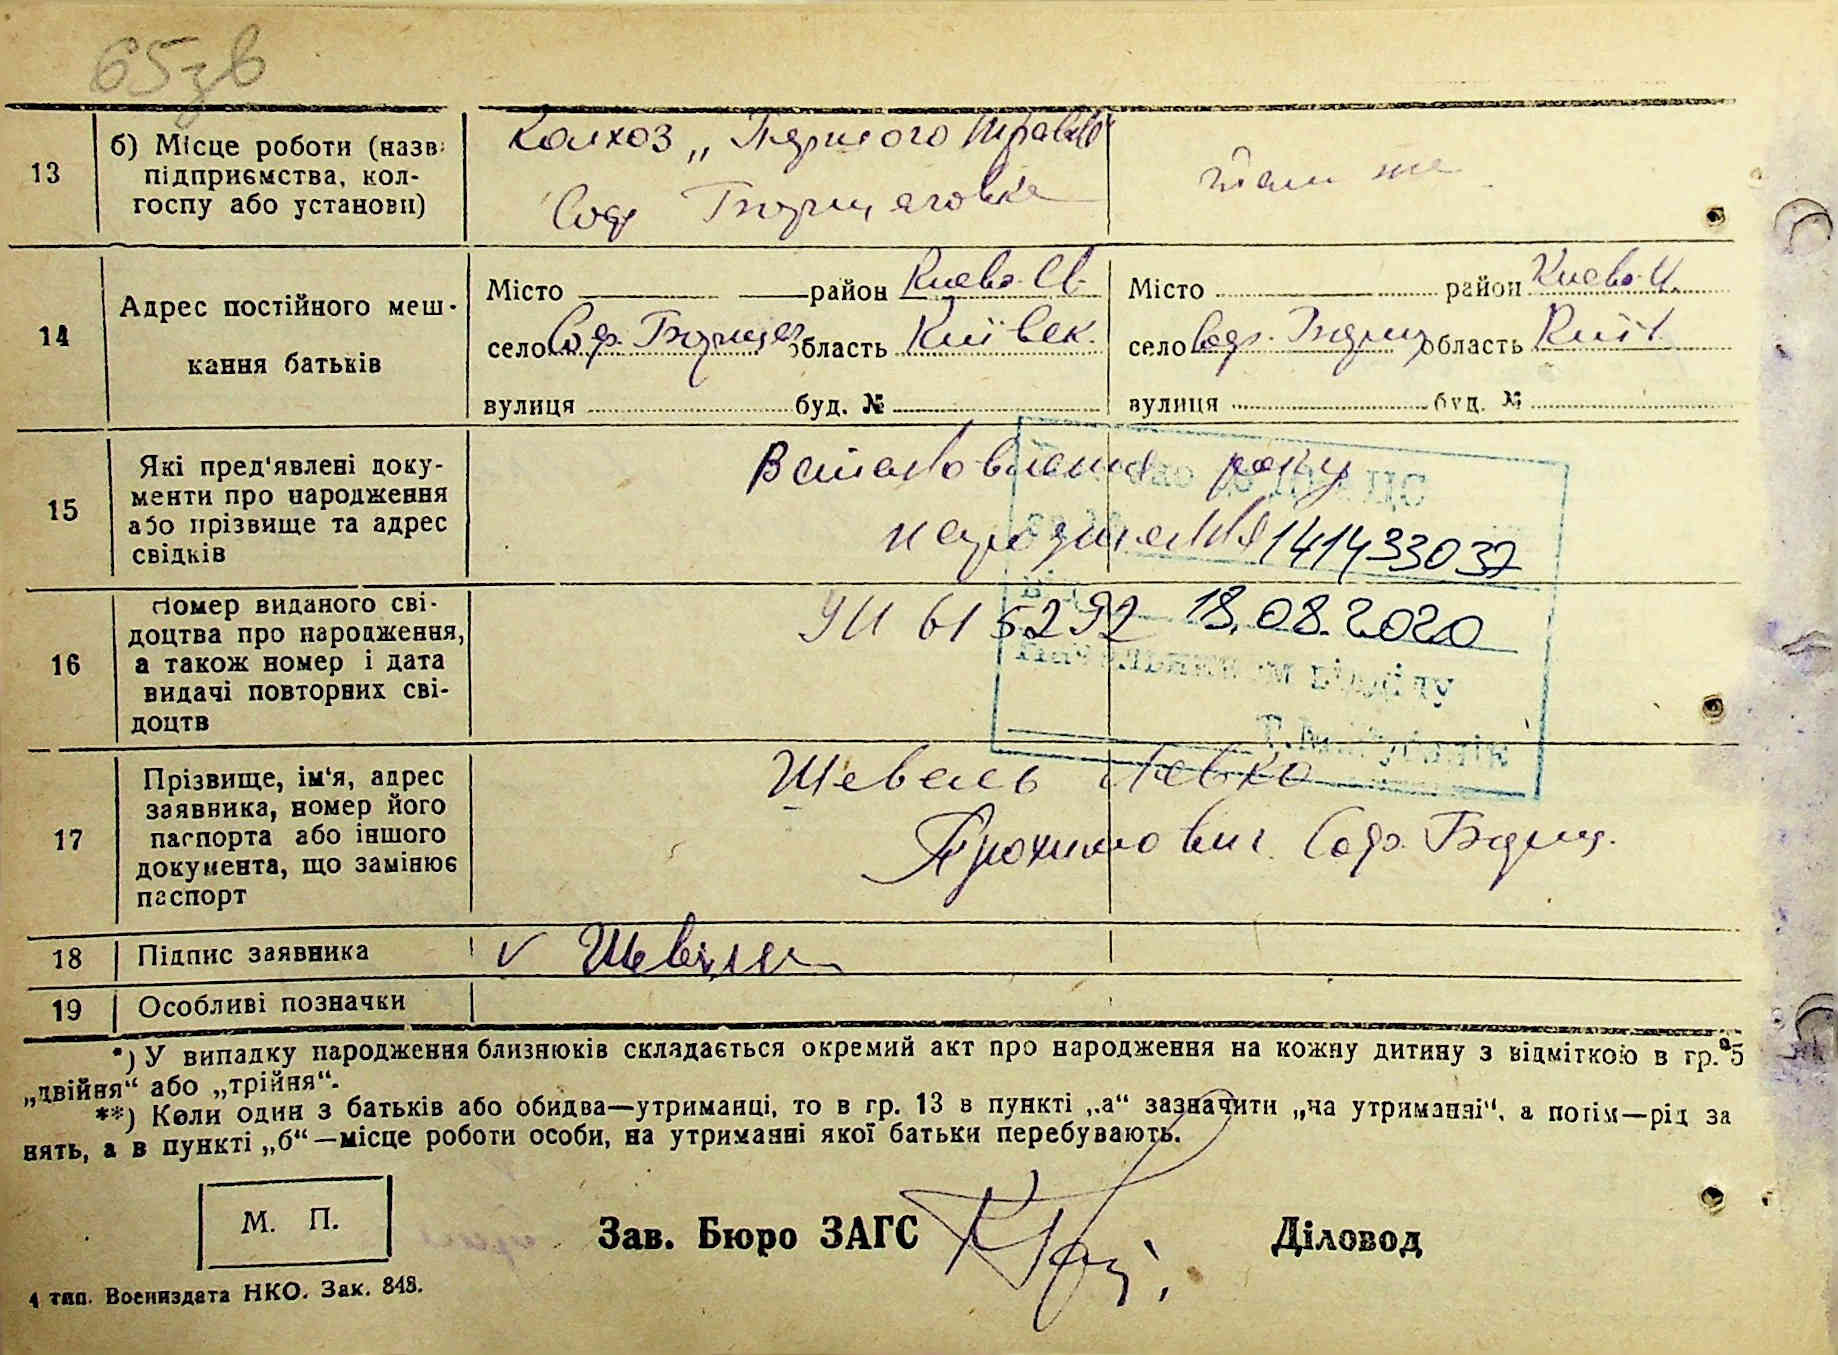 65зв
13
б) Місце роботи (назва
підприємства, кол-
госпу або установи)
Колхоз „Першого травня"
Соф Борщаговка
там же
14
Адрес постійного меш-
кання батьків
Місто район Киево-Св.
село Соф. Борщаг область Київськ.
вулиця буд. №
Місто район Киево-
село Соф. Борщ область Київ
вулиця буд. №
15
Які пред'явлені доку-
менти про народження
або прізвище та адрес
свідків
Встановлення року
народження 141433037
16
Номер виданого сві-
доцтва про народження,
а також номер і дата
видачі повторних сві-
доцтв
615292 18.08.2020
17
Прізвище, ім'я, адрес
заявника, номер його
паспорта або іншого
документа, що замінює
паспорт
Шевель Левко
Трохимович Соф. Борщ.
18
Підпис заявника
v
19
Особливі позначки
*) У випадку народження близнюків складається окремий акт про народження на кожну дитину з відміткою в гр. 5
„двійня" або „трійня".
**) Коли один з батьків або обидва—утриманці, то в гр. 13 в пункті „а" зазначити „на утриманні", а потім—рід за
нять, а в пункті „б"—місце роботи особи, на утриманні якої батьки перебувають.
М. П.
Зав. Бюро ЗАГС
Діловод
4 тип. Воениздата НКО. Зак. 848.